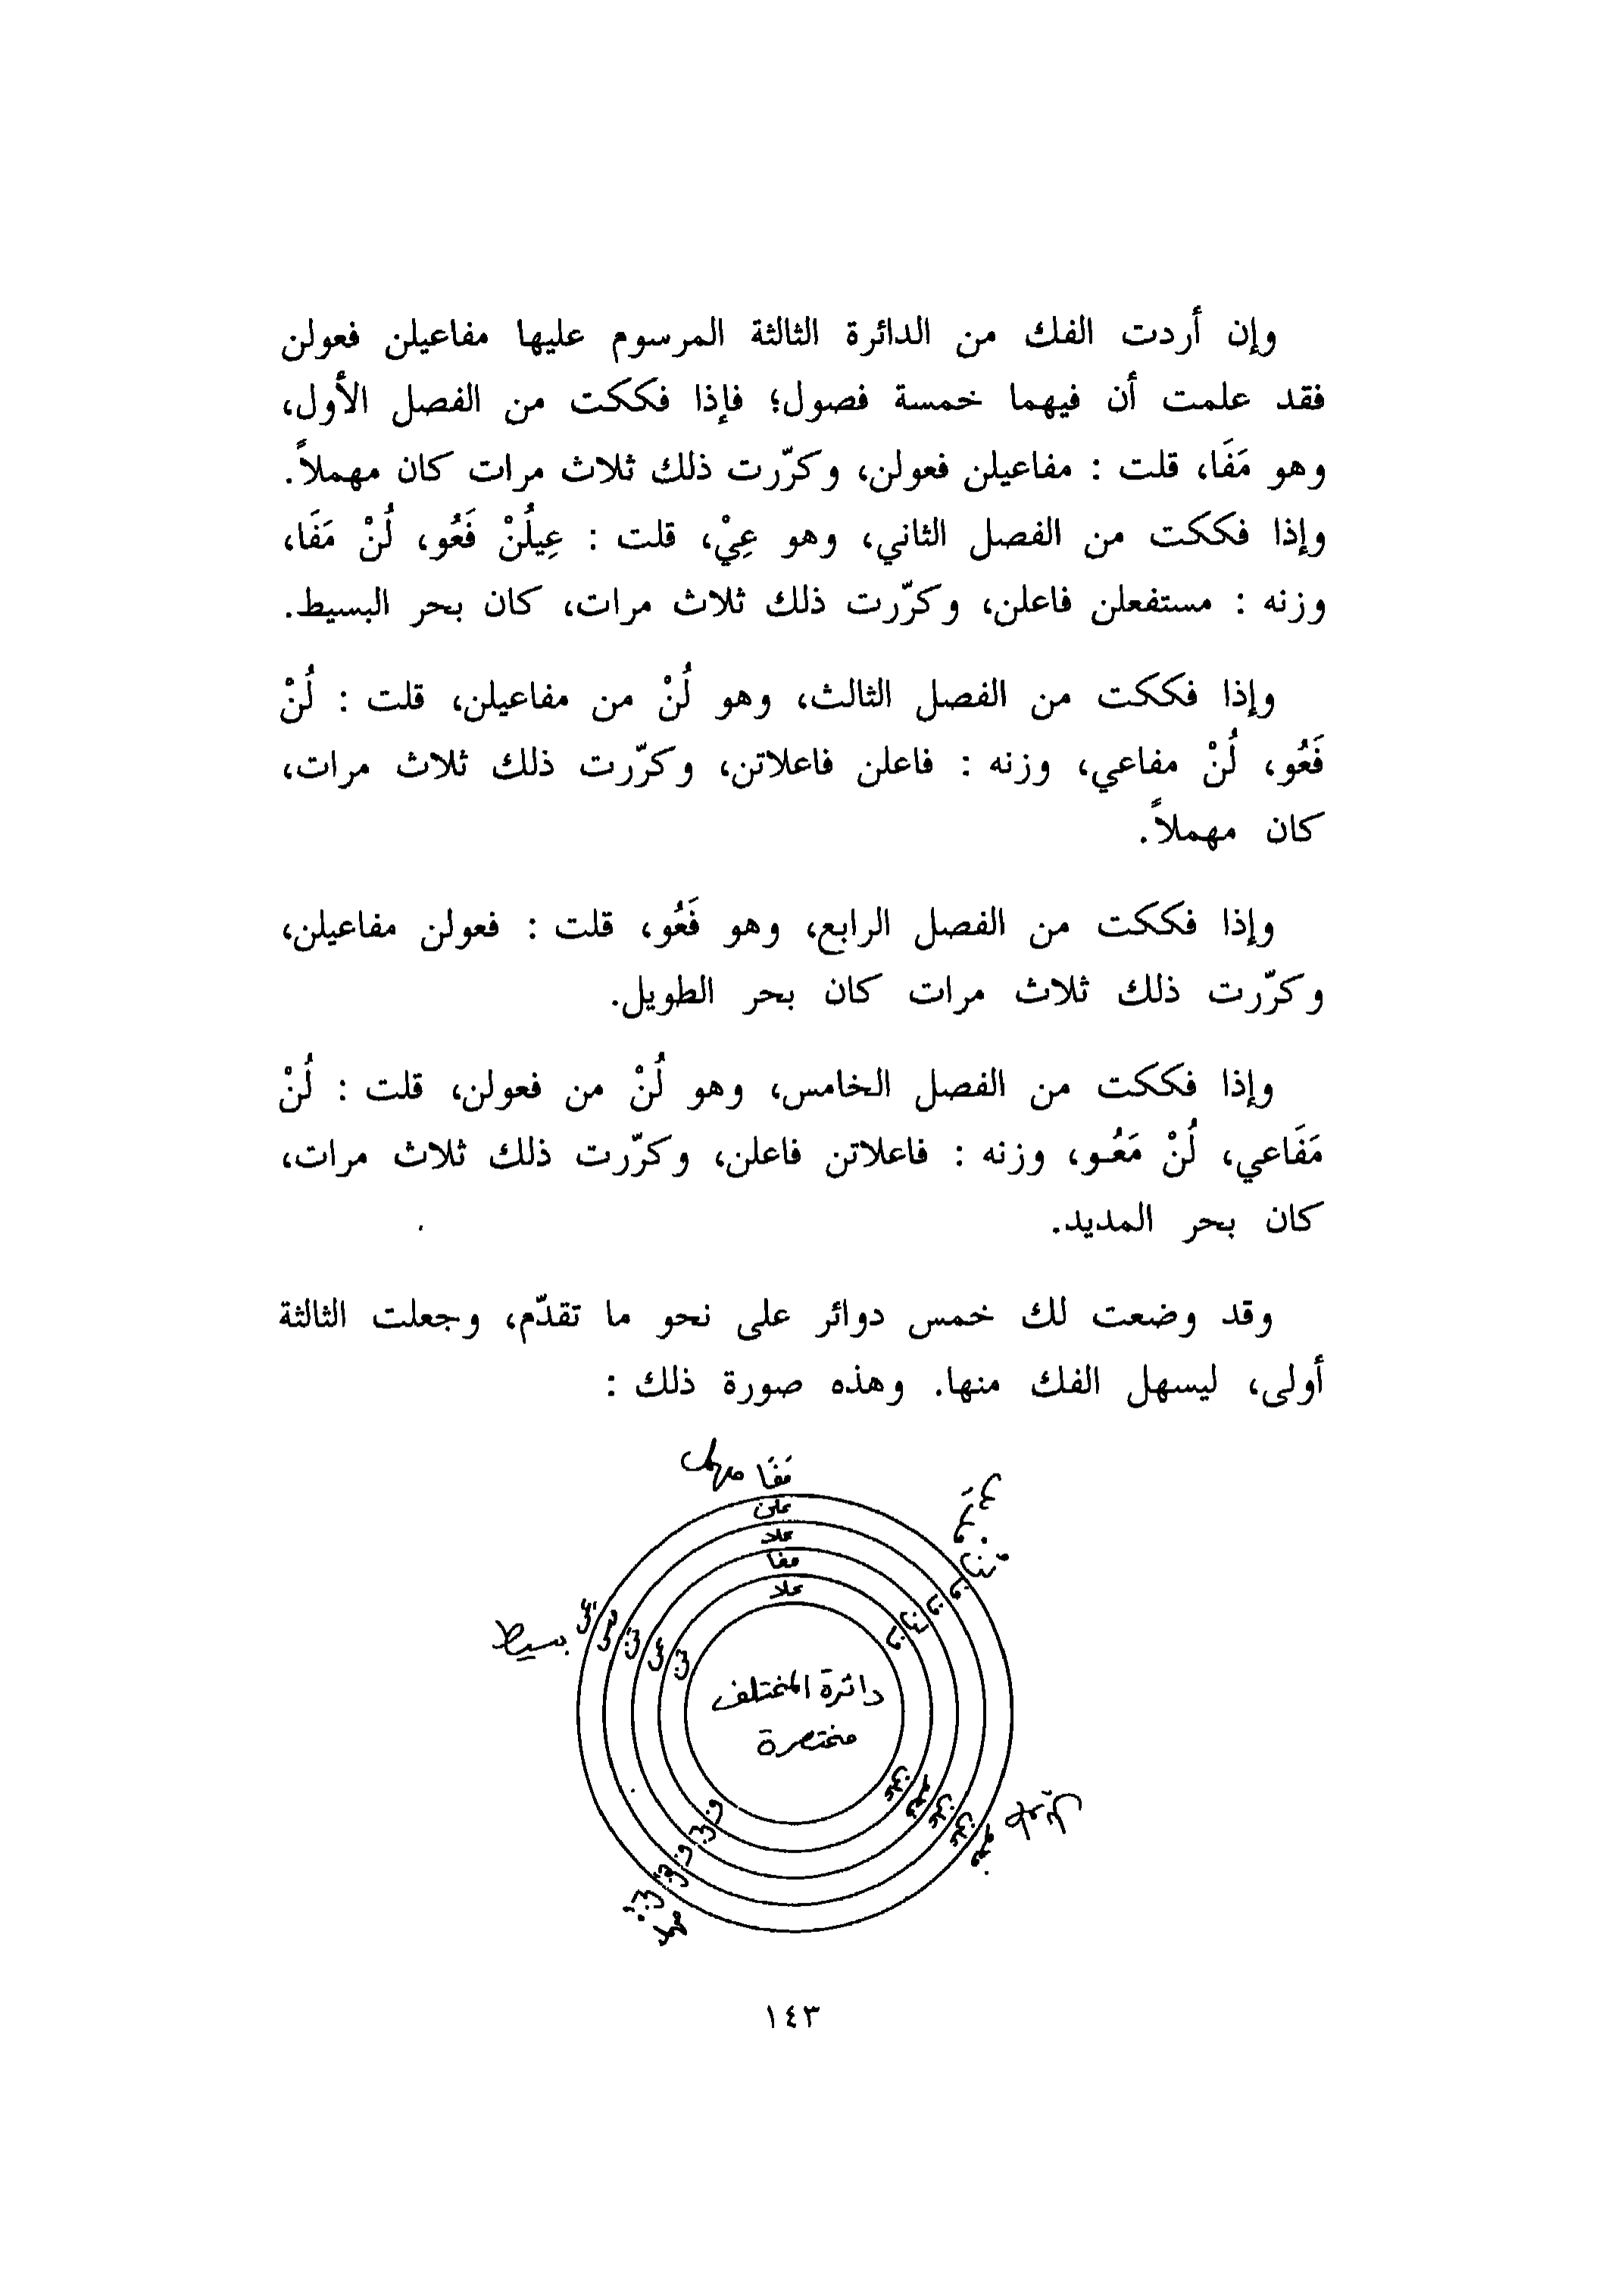 وإن أردت الفك من الدائرة الثالثة المرسوم عليها مفاعيلن فعولن
فقد علمت أن فيهما خمسة فصول؛ فإذا فككت من الفصل الأول،
وهو مَفَا، قلت : مفاعيلن فعولن، وكرّرت ذلك ثلاث مرات كان مهملاً.
وإذا فككت من الفصل الثاني، وهو عِيْ، قلت : عِيلُنْ فَعُو، لُنْ مَفَا،
وزنه : مستفعلن فاعلن، وكرّرت ذلك ثلاث مرات، كان بحر البسيط.
وإذا فككت من الفصل الثالث، وهو لُنْ من مفاعيلن، قلت : لُنْ
فَعُو، لُنْ مفاعي، وزنه : فاعلن فاعلاتن، وكرّرت ذلك ثلاث مرات،
كان مهملاً.
وإذا فككت من الفصل الرابع، وهو فَعُو، قلت : فعولن مفاعيلن،
وكرّرت ذلك ثلاث مرات كان بحر الطويل.
وإذا فككت من الفصل الخامس، وهو لُنْ من فعولن، قلت : لُنْ
مَفَاعي، لُنْ مَعُـو، وزنه : فاعلاتن فاعلن، وكرّرت ذلك ثلاث مرات،
كان بحر المديد.
وقد وضعت لك خمس دوائر على نحو ما تقدّم، وجعلت الثالثة
أولى، ليسهل الفك منها. وهذه صورة ذلك :
مَفَا مهمل
علن
علا
مفا
علا
بسيط
تن
تن
فا
فا
لن
فا
دائرة المختلف
مختصرة
علن
علن
علن
طويل
١٤٣